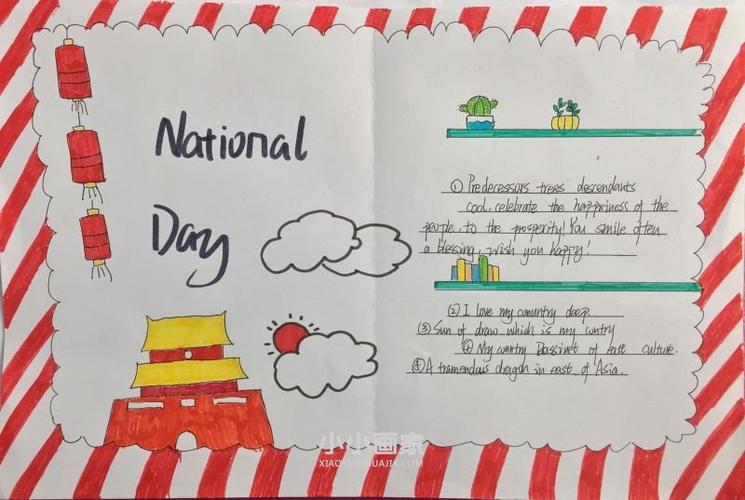 National
Day
① Predecessors trees descendants
cool, celebrate the happriness of the
people, to the prosperity! You smile often
a blessing, wish you happy!
② I love my comuntry deep
③ Sun of draw which is my cuntry
④ My cuntry Bassinet of east culture.
⑤ A tramendous dragon in east of Asia.
小小画家
XIAOXIAOHUAJIA.COM